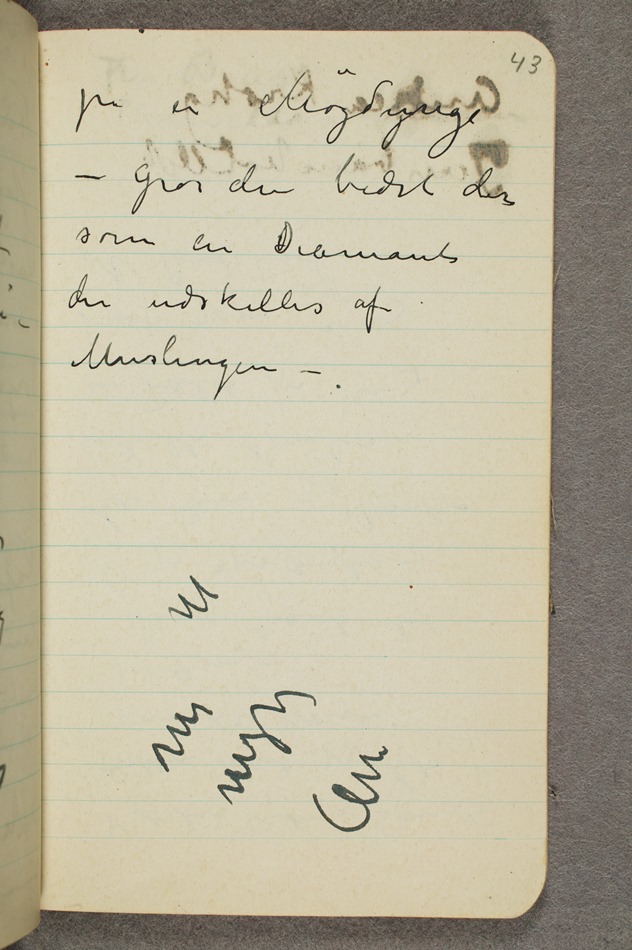 43
på en Mögdynge
– gror den bedst der
som en Diamant
der udskilles af
Muslingen –